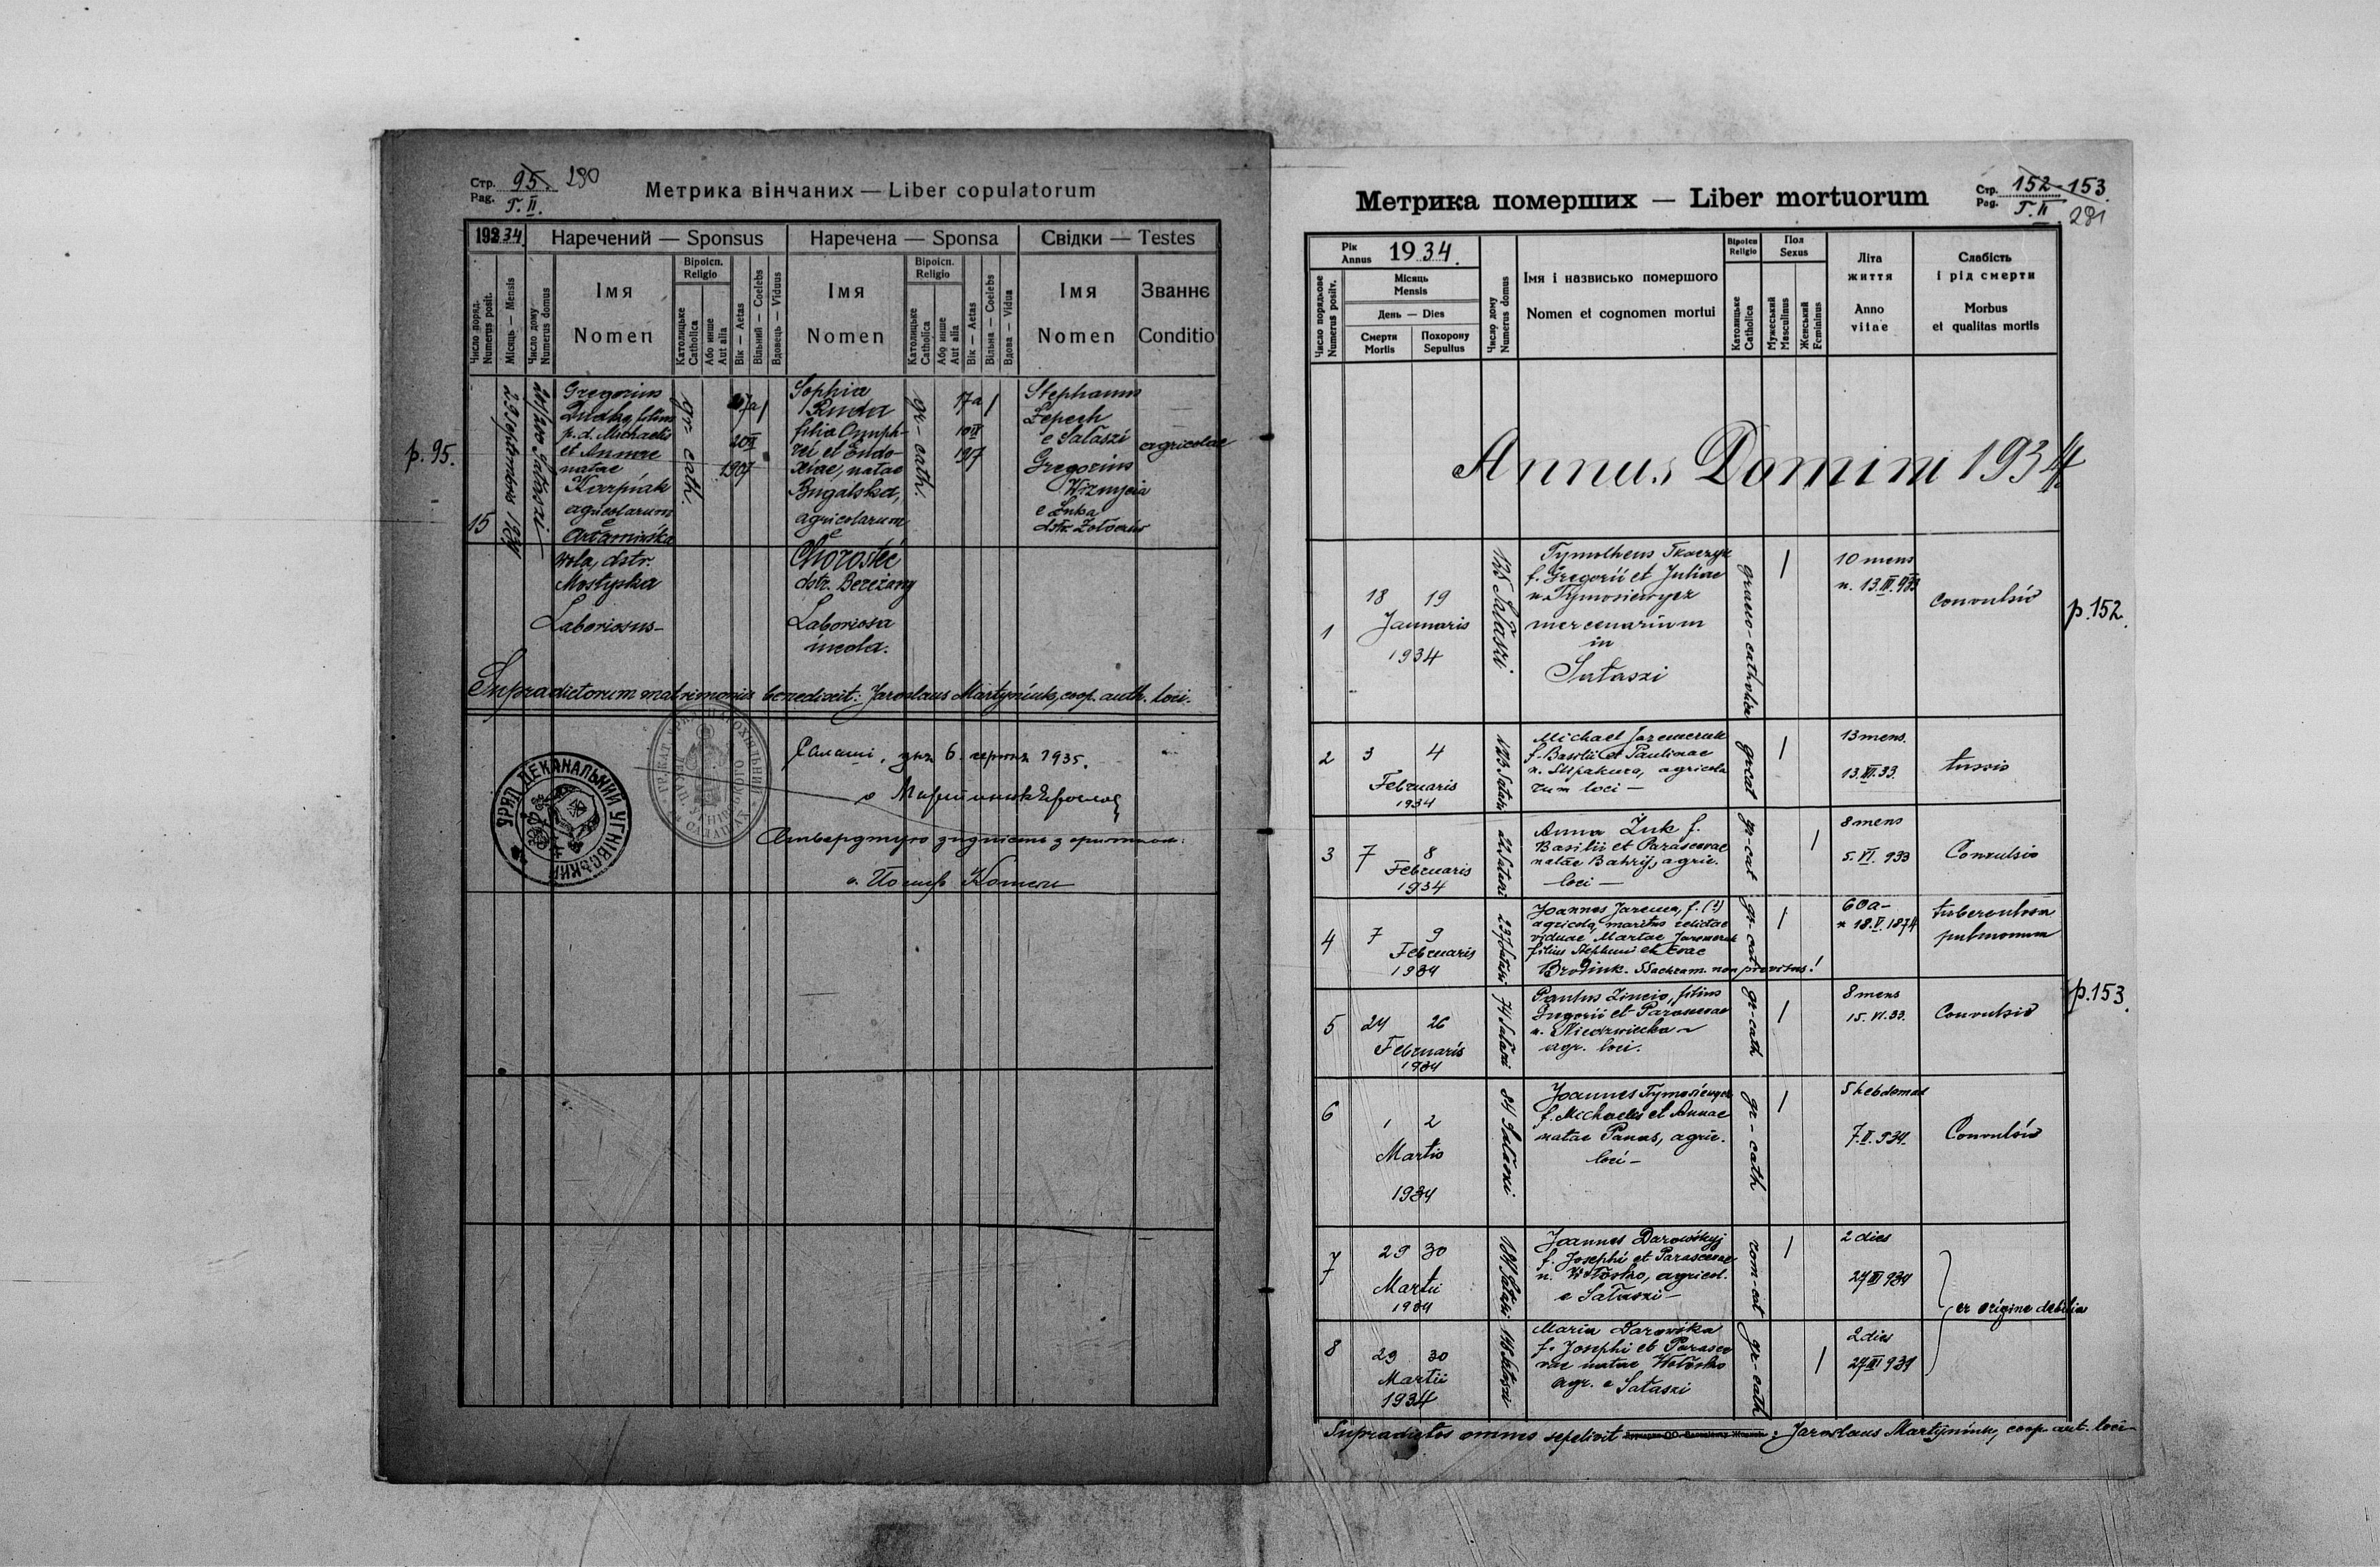 Стр. Pag. 95. 280
Т. II.
Метрика вінчаних — Liber copulatorum
1934.
Наречений — Sponsus
Наречена — Sponsa
Свідки — Testes
Число поряд. Numerus posit.
Місяць — Mensis
Число дому Numerus domus
Імя
Nomen
Віроісп. Religio
Католицьке Catholica
Або инше Aut alia
Вік — Aetas
Вільний — Coelebs
Вдовець — Viduus
Імя
Nomen
Віроісп. Religio
Католицьке Catholica
Або инше Aut alia
Вік — Aetas
Вільна — Coelebs
Вдова — Vidua
Імя
Nomen
Званнє
Conditio
p. 95.
15
Septembris 1934
Gregorius
filius
p. d. Michaelis
et Annae
natae
Karpiak
agricolarum
e
wola, dstr.
Mostyska
Laboriosus
gr-cath.
27 a /
20 III
1907
Sophia
Ruda
filia Onuph-
rei et Eudo-
xiae, natae
Bugalska,
agricolarum
e
Chorostéc
dstr. Bereżany
Laboriosa
incola.
gr-cath.
17 a /
Stephanus
Łepech
e Sałaszi
Gregorius
e
dstr.
agricolae
Supradictorum matrimonia benedixit: Jaroslaus Martyniuk, coop. auth. loci.
Салаші, дня 6. серпня 1935.
о Мартинюк Ярослав
Стверджую згідність з оригіналом:
о.
УРЯД ДЕКАНАЛЬНИЙ УГНІВСЬКИЙ
Метрика померших — Liber mortuorum
Стр. Pag. 152-153
Т. II 281
Рік Annus 1934.
Число порядкове Numerus positv.
Місяць
Mensis
День — Dies
Смерти Mortis
Похорону Sepultus
Число дому Numerus domus
Імя і назвисько помершого
Nomen et cognomen mortui
Віроісп Religio
Католицьке Catholica
Пол Sexus
Мужеський Masculinus
Женський Femininus
Літа
життя
Anno
vitae
Слабість
і рід смерти
Morbus
et qualitas mortis
Annus Domini 1934
1
18 19
Januaris
1934
125 Sałaszi
Tymotheus Tkaczyk
f. Gregorii et Juliae
n. Tymosiewycz
mercenarium
in
Sałaszi
graeco-catholica
/
10 mens
n. 13.III.933
convulsio
p. 152.
2
3 4
Februaris
1934
123 Sałaszi
Michael Jaremczuk
f. Basilii et Paulinae
n. agricola
rum loci —
gr-cat
/
13 mens.
tussis
3
7 8
Februaris
1934
22 Sałaszi
Anna Żuk f.
Basilii et Parascevae
natae Bahrij, agric.
loci —
gr-cat
/
8 mens
5. VI. 933
Convulsio
4
7 9
Februaris
1934
237 Sałaszi
Joannes Jarema, f. (?)
agricola, maritus relictae
viduae Martae
filius Stephani et Evae
Brodiuk. SSacram. non provisus!
gr-cat
/
60 a —
n 18.V.1874
tuberculosa
pulmonum
p. 153
5
24 26
Februaris
1934
74 Sałaszi
Paulus filius
Gregorii et Parascevae
n. Niedzwiecka
agr. loci.
gr-cath
/
8 mens
15. VI. 33.
Convulsio
6
1 2
Martio
1934
84 Sałaszi
Joannes Tymosiewycz
f. Michaelis et Annae
natae Panas, agric.
loci —
gr-cath
/
5 hebdomas
7.II.934.
Convulsio
7
29 30
Martii
1934
Sałaszi
Joannes Darowskyj
f. Josephi et Parascevae
n. Wołoshko, agricol.
e Sałaszi —
rom-cat
/
2 dies
27 III 934
ex origine debilia
8
29 30
Martii
1934
Sałaszi
Maria Darowska
f. Josephi et Parasce
vae natae Wołoshko
agr. e Sałaszi
gr-cath
/
2 dies
27 III 934
Supradictos omnes sepelivit: Jaroslaus Martyniuk, coop. aut. loci